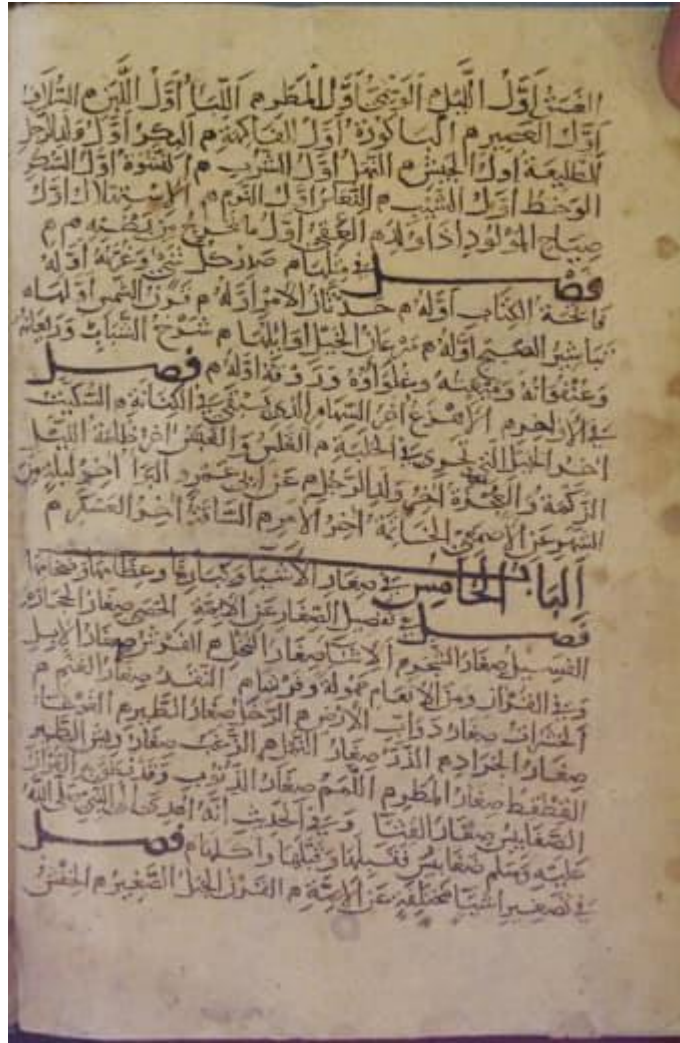 الغسق اول الليل م الوسمي اول المطر م اللبا اول اللبن م السلاف
اول العصير م الباكورة اول الفاكهة م البكر اول ولد الرجل
الطليعة اول الجيش م النهل اول الشرب م النشوة اول السكر
الوخط اول الشيب م النعاس اول النوم م الاستهلال اول
صياح المولود اذا ولد م العقي اول ما يخرج من بطنه م م
فصل في مثلها م صدر كل شي وغرته اوله
فاتحة الكتاب اوله م حدثان الامر اوله م قرن الشمس اولها م
تباشير الصبح اوله م رعان الخيل اوائلها م شرخ الشباب وريعانه
وعنفوانه وميعته وغلواؤه وريقه اوله م فصل
في الاواخر م الاهزع اخر السهام الذي يبقى في الكنانة م السكيت
اخر الخيل التي تجري في الحلبة م الغلس والغبش اخر ظلمة الليل
الزكمة والعجزة اخر ولد الرجل م عن ابي عمرو البرا اخر ليلة من
الشهر عن الاصمعي الخاتمة اخر الامر م الساقة اخر العسكر م
الباب الخامس في صغار الاشيا وكبارها وعظامها وضخامها
فصل في تفصيل الصغار عن الايمة الحصى صغار الحجارة
الفسيل صغار الشجر م الاشا صغار النخل م الفرش صغار الابل
وفي القران ومن الانعام حمولة وفرشا م النقد صغار الغنم م
الحشرات صغار دواب الارض م الرخا صغار الطير م الغوغا
صغار الجراد م الذر صغار النمل م الزغب صغار ريش الطير
القطقط صغار المطر م اللمم صغار الذنوب وقد نطق به القران
الضغابيس صغار القثا وفي الحديث انه اهدي الى النبي صلى الله
عليه وسلم ضغابيس فقبلها وقبلها واكلها م فصل
في تصغير اشيا مختلفة عن الايمة م القرن الجبل الصغير م الحفش